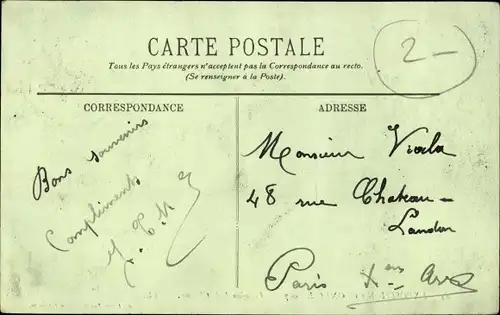 CARTE POSTALE
Tous les Pays étrangers n'acceptent pas la Correspondance au recto.
(Se renseigner à la Poste).
2 -
CORRESPONDANCE
Bons souvenirs
Compliments
ADRESSE
Monsieur Viala
48 rue Chateau-
Landon
Paris X